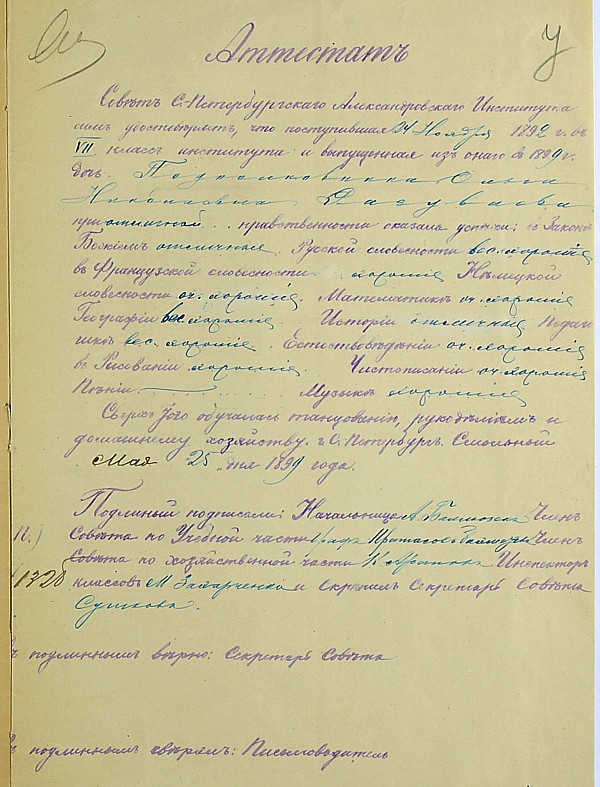 Аттестатъ
Совѣтъ С.-Петербургскаго Александровскаго Института
симъ удостовѣряетъ, что поступившая 24 Ноября 1892 г. въ
VII классъ института и выпущенная изъ онаго въ 1899 г.
дочь Подполковника Ольга
Николаевна
при отличной нравственности оказала успѣхи: въ Законѣ
Божіемъ отличные Русской словесности вес. хорошіе
въ Французской словесности хорошіе Нѣмецкой
словесности оч. хорошіе. Математикѣ оч. хорошіе
Географіи вес. хорошіе. Исторіи отличные Педаго
гикѣ вес. хорошіе. Естествовѣдѣніи оч. хорошіе
въ Рисованіи хорошіе. Чистописаніи оч. хорошіе
Пѣніи — Музыкѣ хорошіе
Сверхъ того обучалась танцованію, рукодѣліямъ и
домашнему хозяйству. г. С.-Петербургъ. Смольный
Мая 25 дня 1899 года.
Подлиный подписали: Начальница А. Членъ
Совѣта по Учебной части Графъ Протасовъ-Бахметевъ Членъ
Совѣта по хозяйственной части Инспекторъ
1320 классовъ М. Захарченко и скрепилъ Секретарь Совѣта
Сушкова.
подлиннымъ вѣрно: Секретарь Совѣта
подлиннымъ свѣрялъ: Письмоводитель